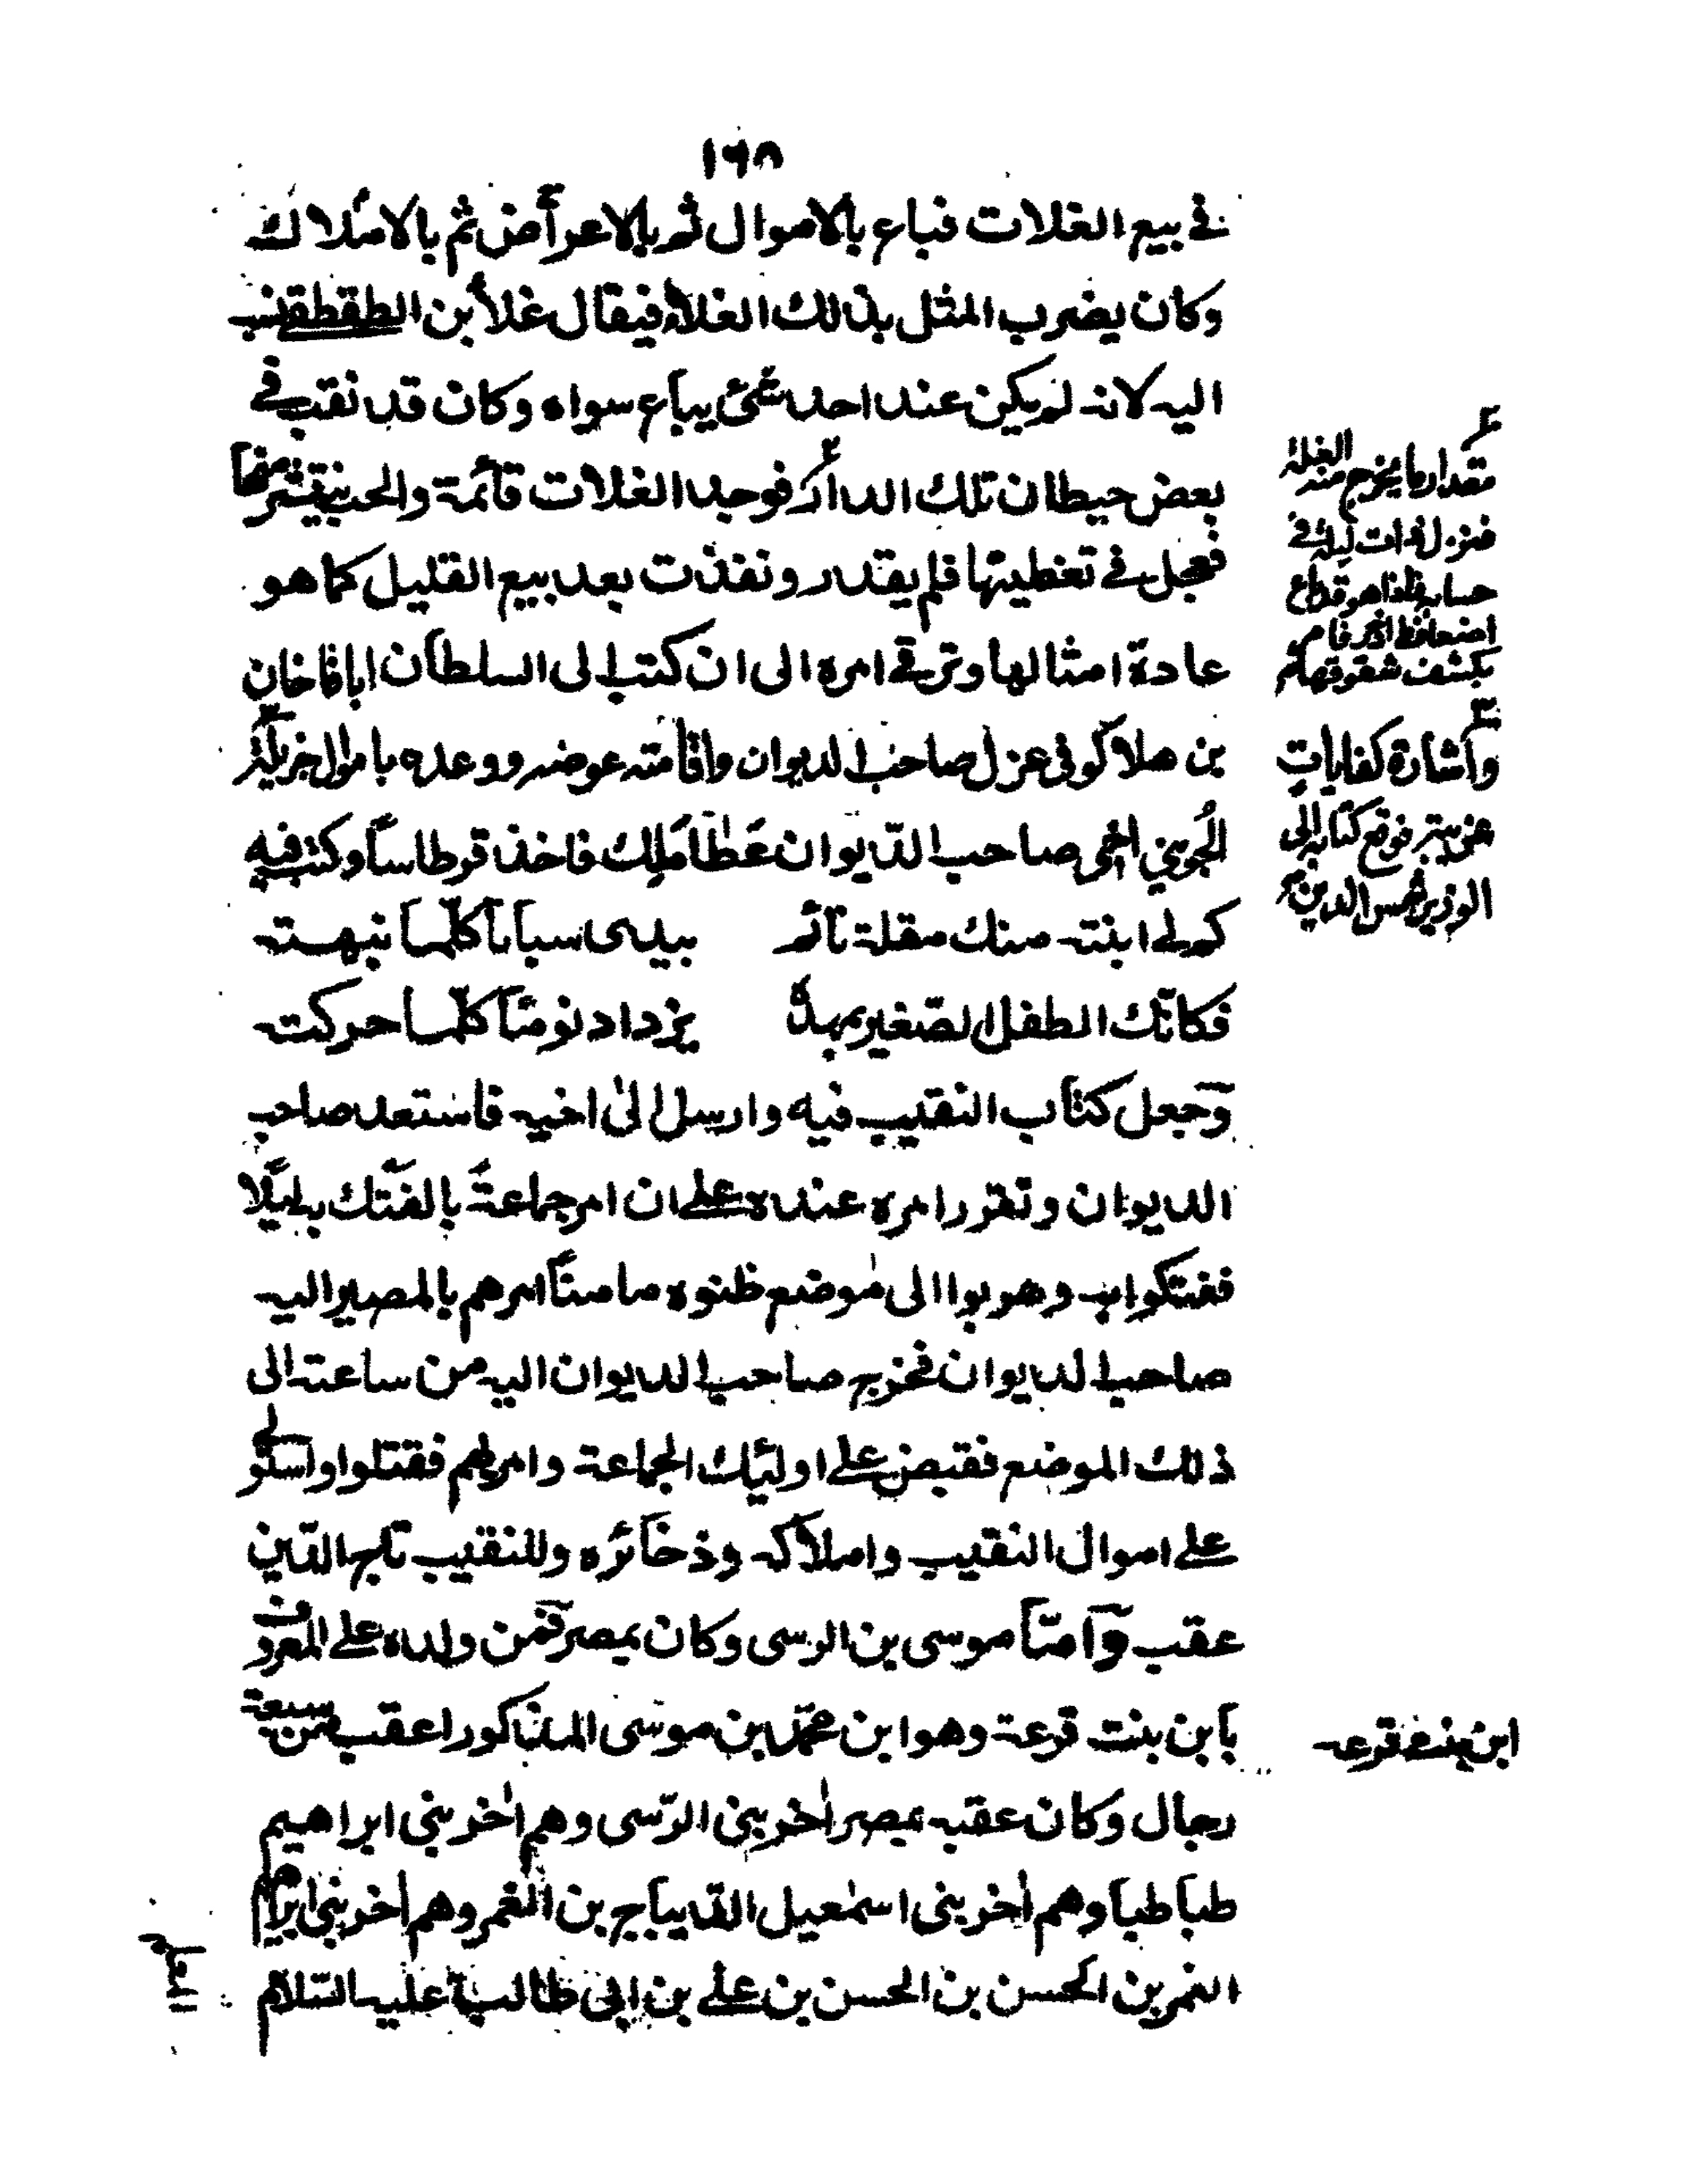 ١٦٨
في بيع الغلات فباع بالاموال ثم بالاعراض ثم بالاملاك
وكان يضرب المثل بذلك الغلاء فيقال غلأ بن الطقطقي نسب
اليه لانه لم يكن عند احد شئ يباع سواه وكان قد نقب في
بعض حيطان تلك الدار فوجد الغلات قائمة والحب ينتثر منها
فعجل في تغطيتها فلم يقدر ونفذت بعد بيع القليل كما هو
عادة امثالها وترقى امره الى ان كتب الى السلطان اباقاخان
بن هلاكو في عزل صاحب الديوان واقامته عوضه ووعده باموال جزيلة
الجويني اخى صاحب الديوان عطا ملك فاخذ قرطاسا وكتب فيه
كم لى ابنته منك مقلة نائم بيدى سباتا كلما نبهته
فكانك الطفل الصغير بمهده يزداد نوما كلما حركته
وجعل كتاب النقيب فيه وارسل الى اخيه فاستعد صاحب
الديوان وتقرر امره عنده على ان امر جماعة بالفتك به ليلا
ففتكوا به وهربوا الى موضع ظنوه مامنا امرهم بالمصير اليه
صاحب الديوان فخرج صاحب الديوان اليه من ساعته الى
ذلك الموضع فقبض على اولئك الجماعة وامر بهم فقتلوا واستولى
على اموال النقيب واملاكه وذخائره وللنقيب تاج الدين
عقب وآما موسى بن الرسى وكان بمصر فمن ولده على المعروف
بابن بنت قرعة وهو ابن محمد بن موسى المذكور اعقب من سبعة
رجال وكان عقبه بمصر اخر بنى الرسى وهم اخر بنى ابراهيم
طباطبا وهم اخر بنى اسمعيل الديباج بن الغمر وهم اخر بنى ابراهيم
الغمر بن الحسن بن الحسن بن على بن ابى طالب عليه السلام
مقدار ما يخرج منه الغلة
فنزل ذات ليلة في
حسابه فاذا هو قد باع
اضعاف ذخر فقام
يكشف شقوقها
واشارة كفايات
عن يته فوقع كتابه الى
الوزير شمس الدين
ابن بنت قرعه